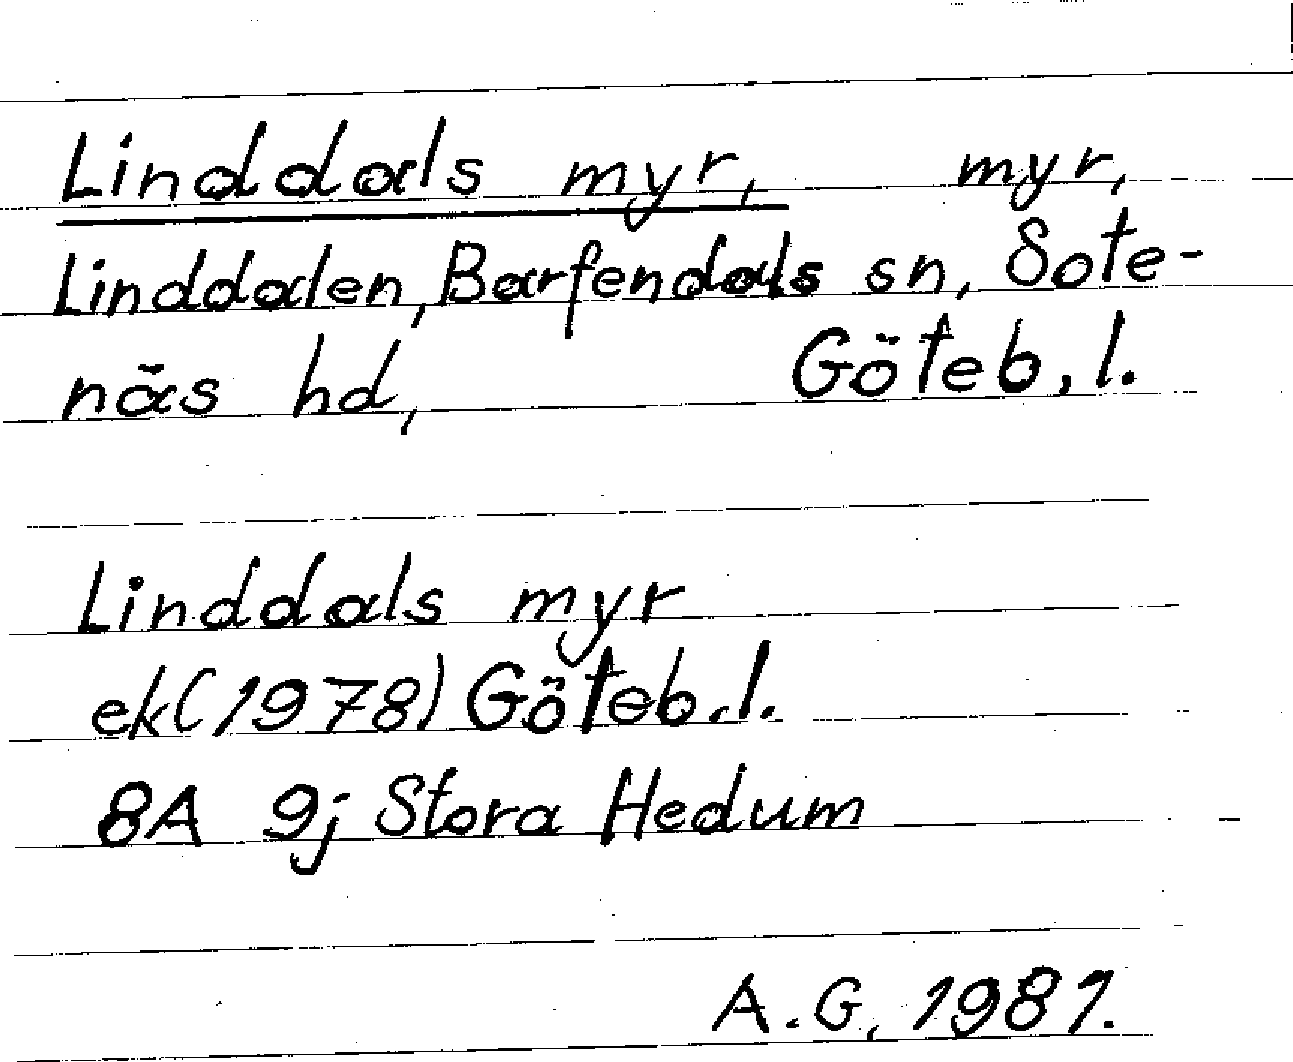 Linddals myr, myr,
Linddalen, Bärfendals sn, Sote-
näs hd, Göteb. l.
Linddals myr
ek (1978) Göteb. l.
8A 9j Stora Hedum
A. G. 1981.